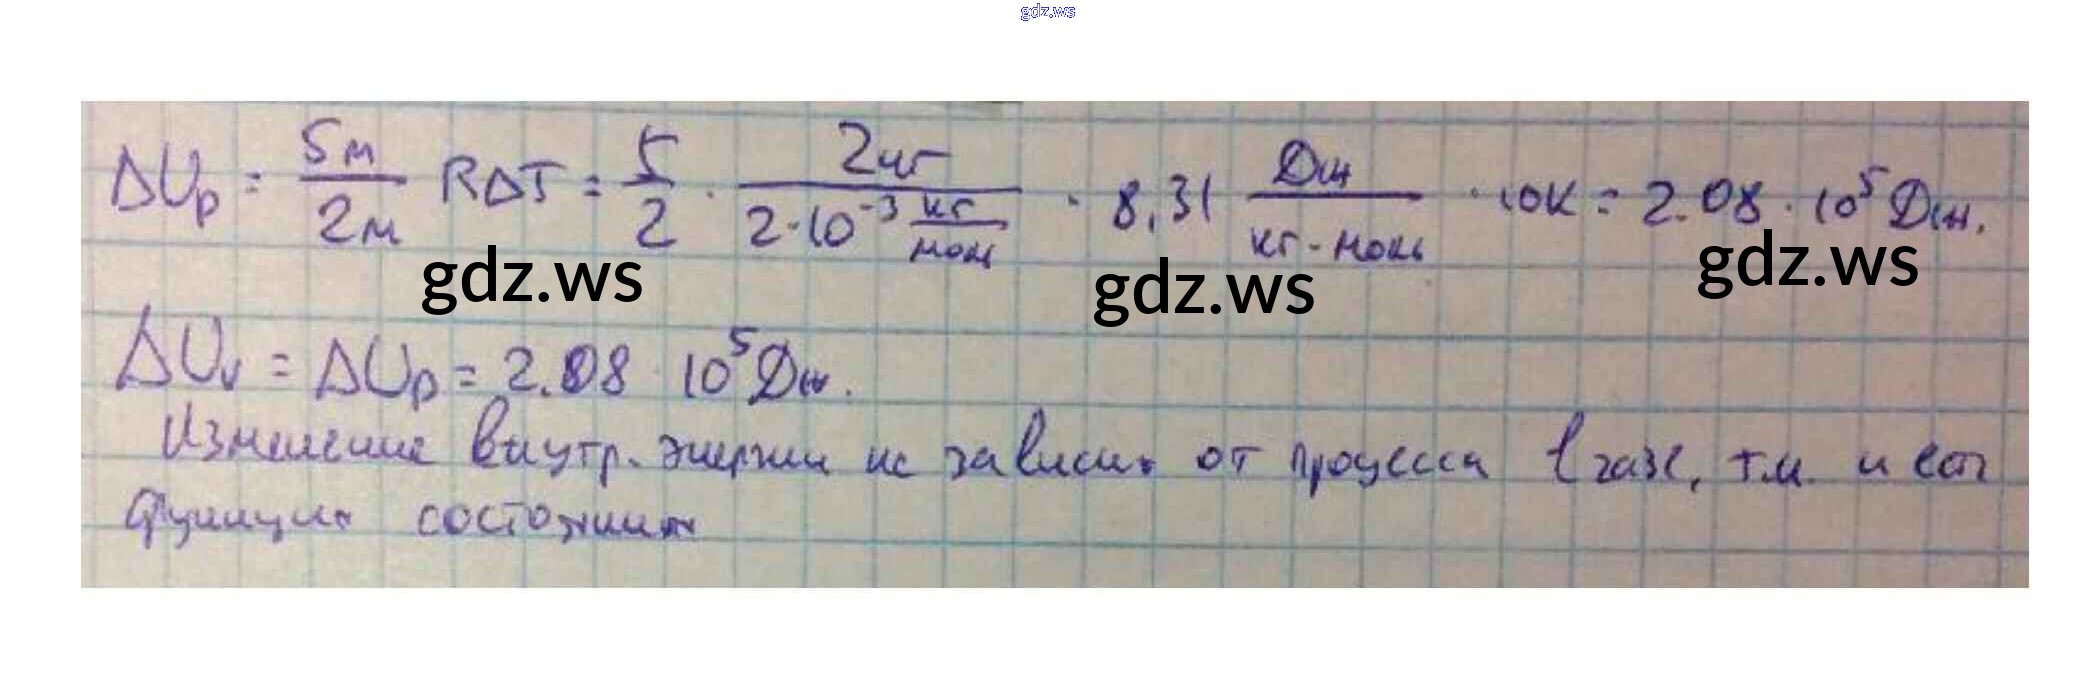 gdz.ws
ΔUp = 5м/2м RΔT = 5/2 · 2кг/(2·10⁻³ кг/моль) · 8,31 Дж/(кг·моль) · 10К = 2.08 · 10⁵ Дж.
gdz.ws gdz.ws gdz.ws
ΔUv = ΔUp = 2.08 · 10⁵ Дж.
Изменение внутр. энергии не зависит от процесса в газе, т.к. и есть
функция состояния